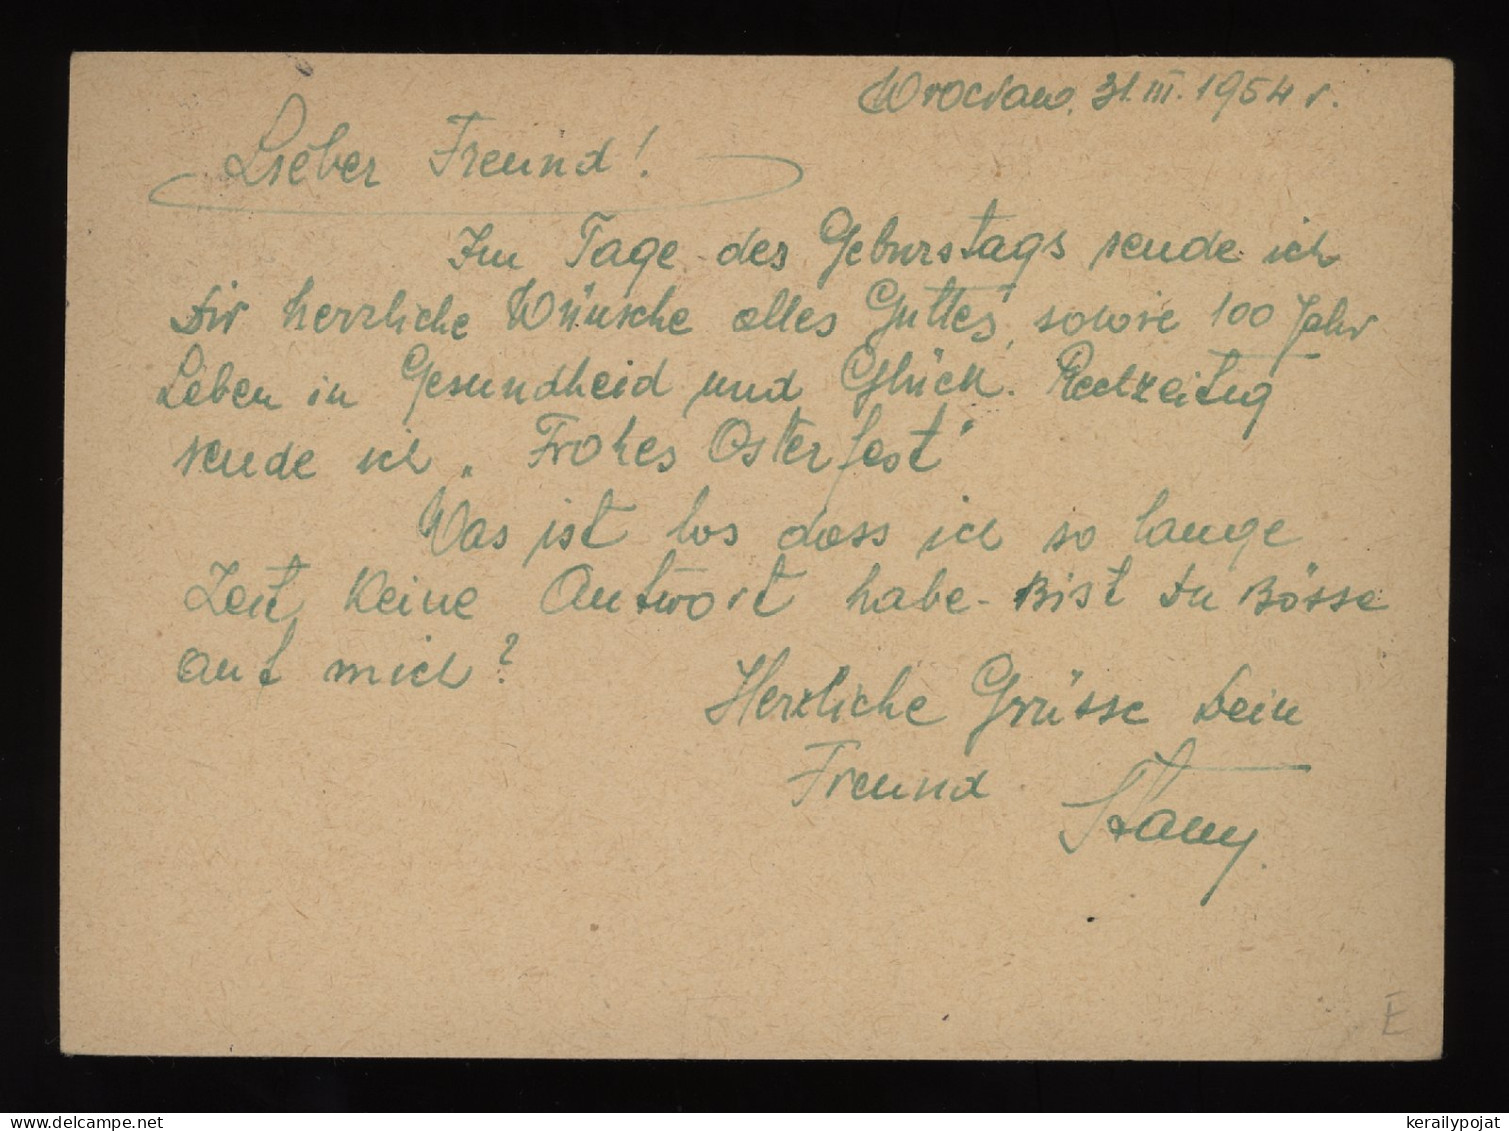 Wrocław, 31.III.1954 r.
Lieber Freund!
Im Tage des Geburstags sende ich
Dir herzliche Wünsche alles Guttes, sowie 100 Jahr
Leben in Gesundheid und Glück. Rechtzeitig
sende ich „Frohes Osterfest"
Was ist los dass ich so lange
Zeit keine Antwort habe - Bist Du Bösse
auf mich?
Herzliche Grüsse Dein
Freund
E
kerailypojat